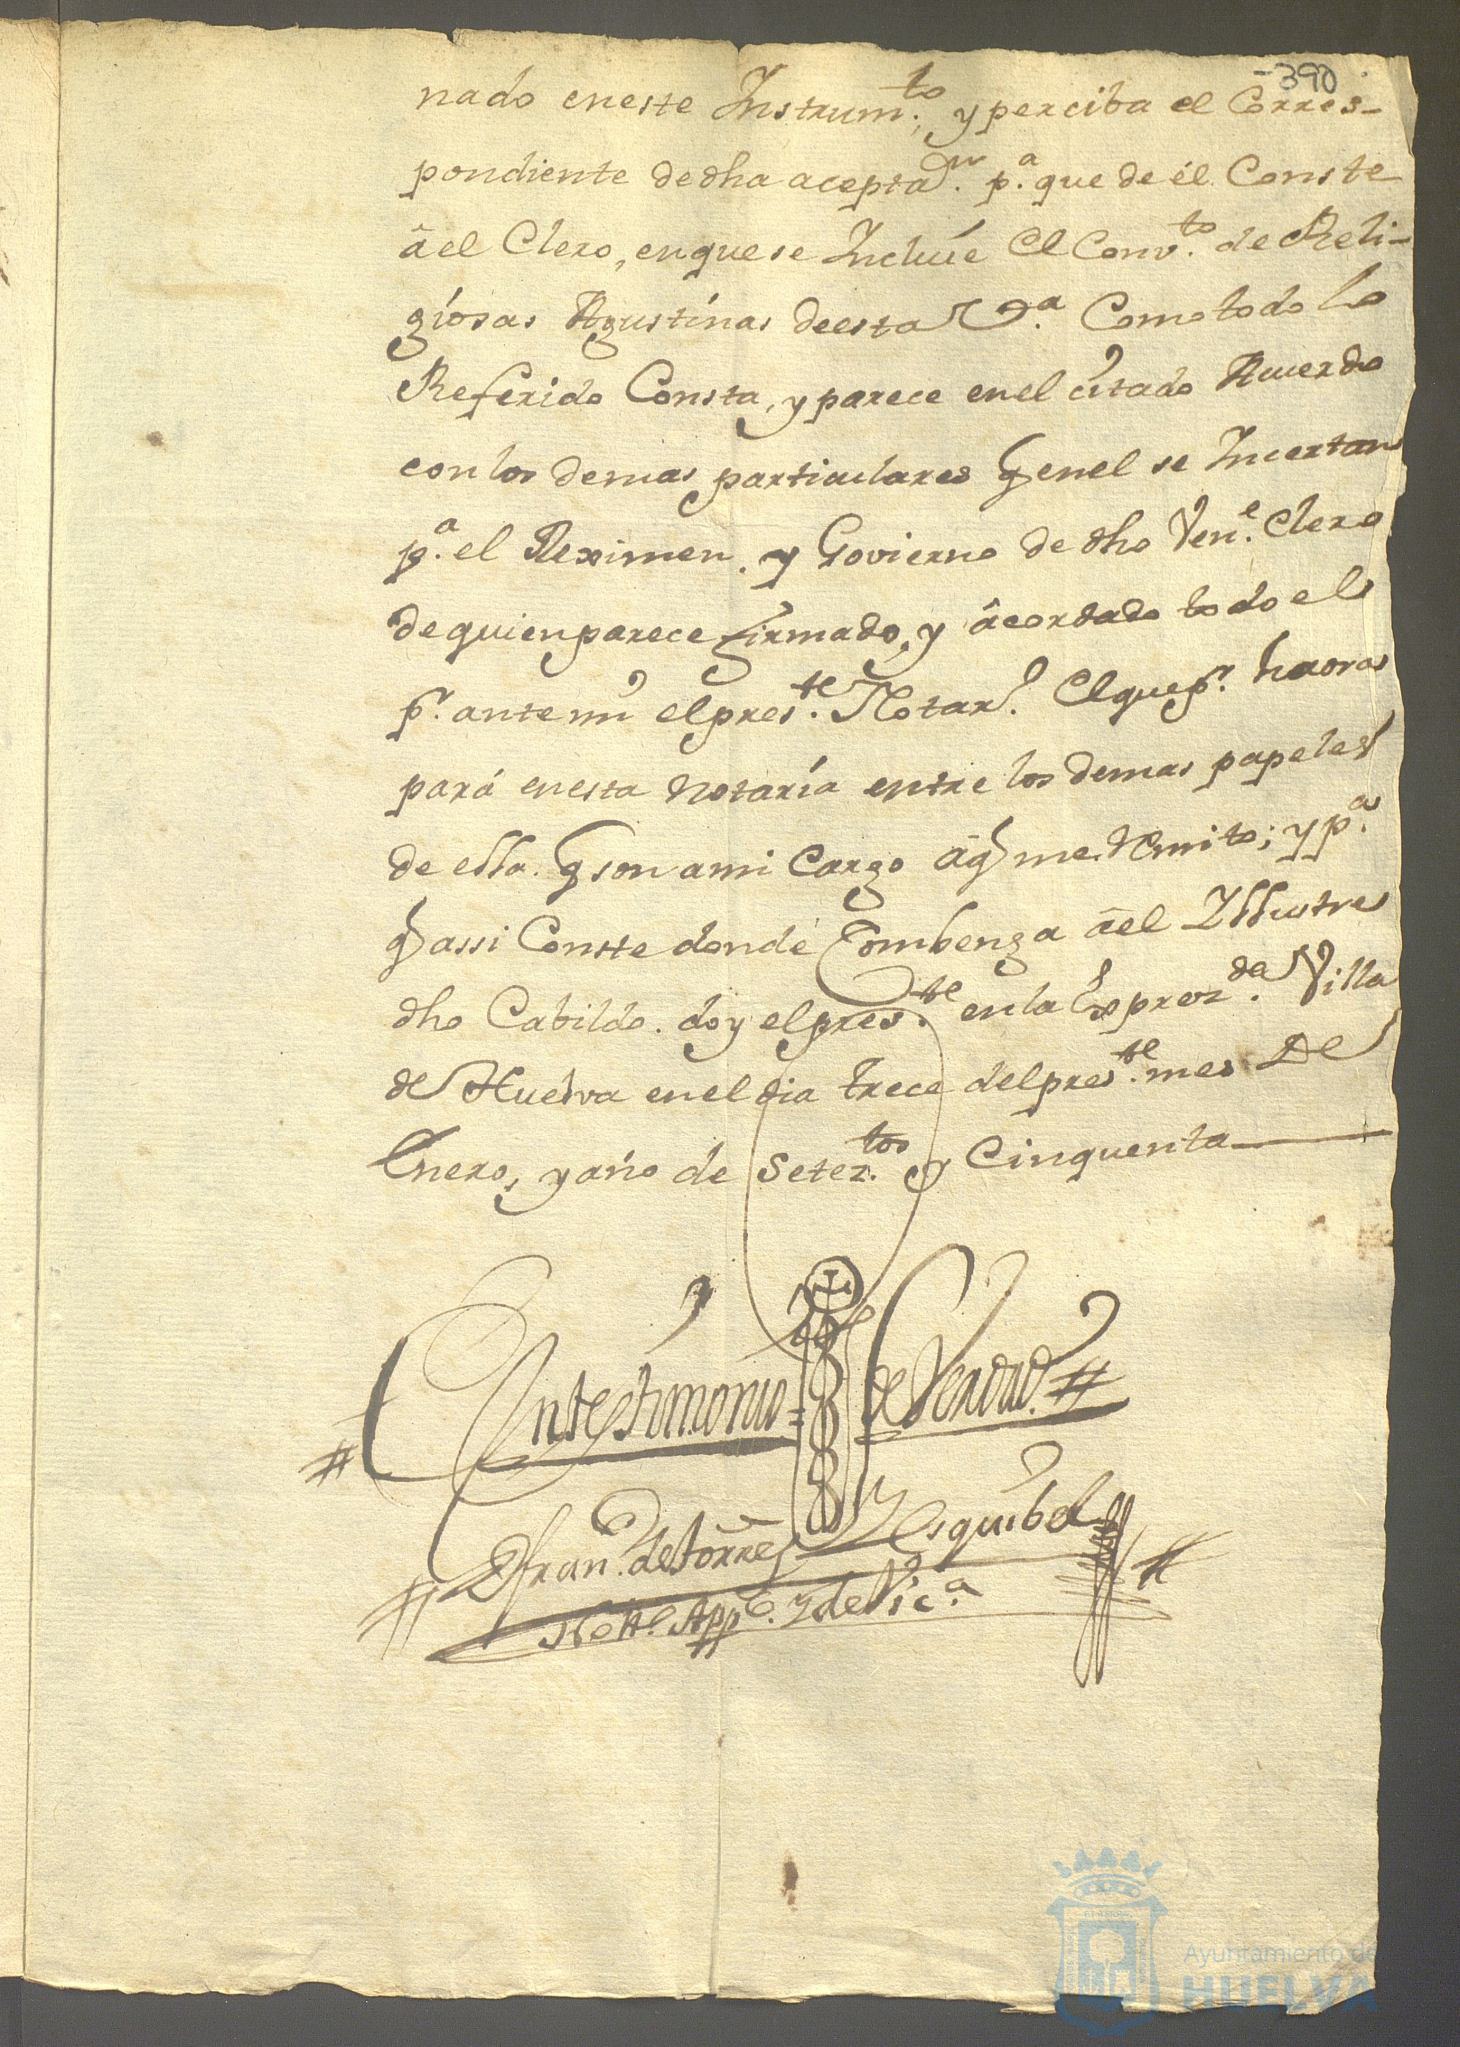 -390
nado eneste Instrum.to, y perciba el Corres-
pondiente de dha aceptaon. p.a que de él Conste
â el Clero, enque se Incluíe el Conv.to de Reli-
giosas Agustinas deesta V.a Como todo lo
Referido Consta, y parece enel citado Acuerdo
con los demas particulares q enel se Incertan
p.a el Reximen. y Govierno de dho Ven.e Clero
de quien parece firmado, y âcordado todo ello
pr. ante mi el pres.te Notar.o El que pr. haora
pará enesta Notaría entre los demas papeles
de ella. q son a mi Cargo âq me Remito; y p.a
q assi Conste donde Combenga âel Illustre
dho Cabildo. doy el pres.te en la Exprez.da Villa
de Huelva en el dia trece del pres.te mes de
Enero, y año de Setez.tos y Cinquenta
En testimonio = de Verdad. #
D Fran.co de Torres y Esquibel
Nott.o App.co y de Vic.a
Ayuntamiento de
HUELVA